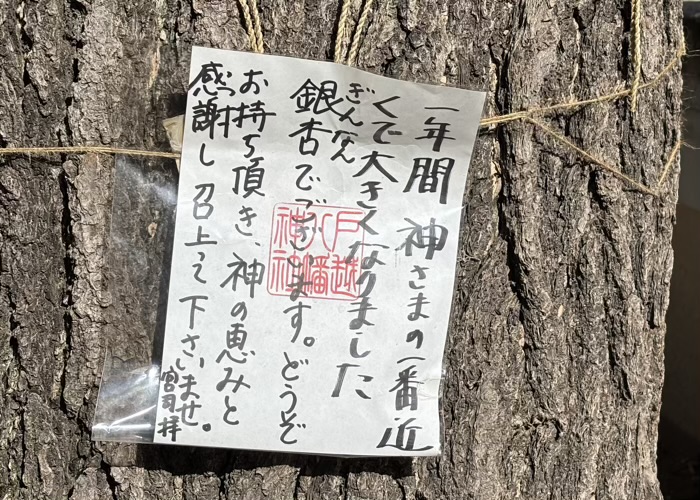 一年間 神さまの一番近
くで大きくなりました
ぎんなん
銀杏でございます。どうぞ
お持ち頂き、神の恵みと
感謝し召上って下さいませ。
宮司拝
戸越
八幡
神社